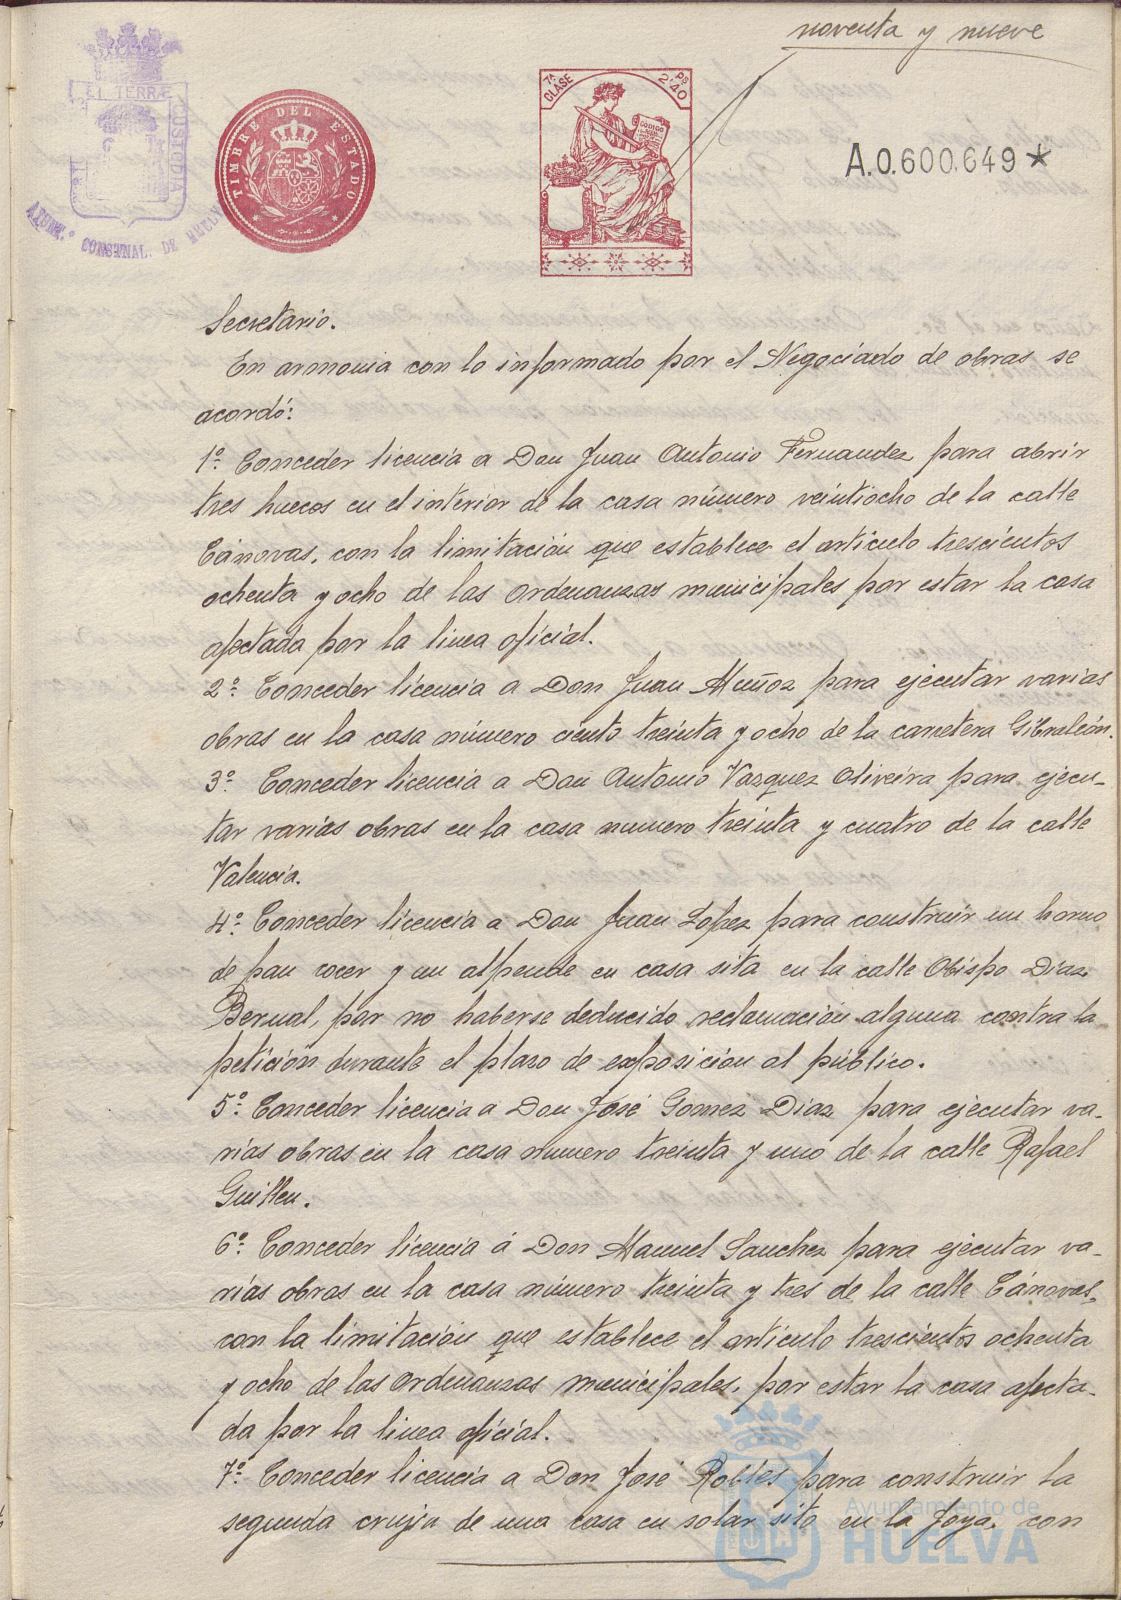 noventa y nueve
TERRÆ
CUSTODIA
AYUNT.º CONSTNAL. DE HUELVA
TIMBRE DEL ESTADO
7ª CLASE
Ps 2'40
CODIGO
A.0.600.649*
Secretario.
En armonia con lo informado por el Negociado de obras se
acordó:
1º Conceder licencia a Don Juan Antonio Fernandez para abrir
tres huecos en el interior de la casa número veintiocho de la calle
Cánovas, con la limitación que establece el artículo trescientos
ochenta y ocho de las Ordenanzas municipales por estar la casa
afectada por la linea oficial.
2º Conceder licencia a Don Juan Muñoz para ejecutar varias
obras en la casa número ciento treinta y ocho de la carretera Gibraleón.
3º Conceder licencia a Don Antonio Vazquez Oliveira para ejecu-
tar varias obras en la casa numero treinta y cuatro de la calle
Valencia.
4º Conceder licencia a Don Juan Lopez para construir un horno
de pan cocer y un alpende en casa sita en la calle Obispo Diaz
Bernal, por no haberse deducido reclamación alguna contra la
petición durante el plazo de exposición al público.
5º Conceder licencia a Don José Gomez Diaz para ejecutar va-
rias obras en la casa número treinta y uno de la calle Rafael
Guillen.
6º Conceder licencia á Don Manuel Sanchez para ejecutar va-
rias obras en la casa número treinta y tres de la calle Cánovas,
con la limitación que establece el artículo trescientos ochenta
y ocho de las Ordenanzas municipales, por estar la casa afecta-
da por la linea oficial.
7º Conceder licencia a Don José Robles para construir la
segunda crujia de una casa en solar sito en la Joya, con
Ayuntamiento de
HUELVA